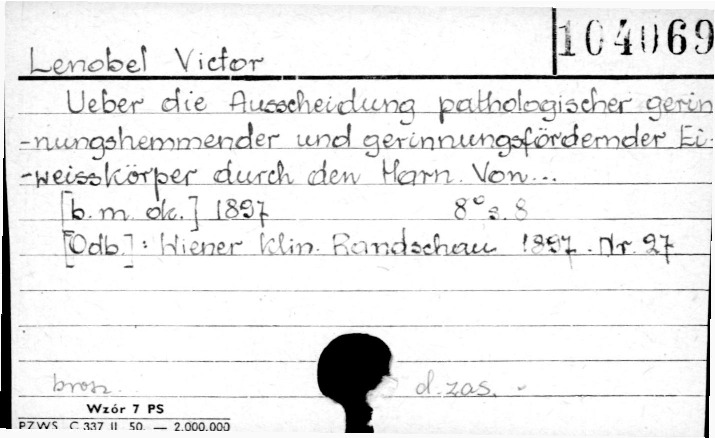 104069
Lenobel Victor
Ueber die Ausscheidung pathologischer gerin
-nungshemmender und gerinnungsfördernder Ei-
-weisskörper durch den Harn. Von...
[b. m. ok.] 1897 8° s. 8
[Odb.]: Wiener klin. Randschau 1897. Nr. 27
brosz. d. zas. -
Wzór 7 PS
PZWS C 337 II 50. — 2.000.000